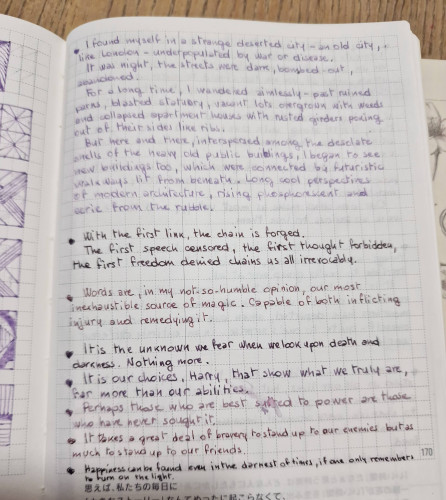 • I found myself in a strange deserted city - an old city,
like London - underpopulated by war or disease.
It was night, the streets were dark, bombed-out,
abandoned.
For a long time, I wandered aimlessly - past ruined
parks, blasted statuary, vacant lots overgrown with weeds
and collapsed apartment houses with rusted girders poking
out of their sides like ribs.
But here and there, interspersed among the desolate
shells of the heavy old public buildings, I began to see
new buildings too, which were connected by futuristic
walkways lit from beneath. Long cool perspectives
of modern architecture, rising phosphorescent and
eerie from the rubble.
• With the first link, the chain is forged.
The first speech censored, the first thought forbidden,
the first freedom denied chains us all irrevocably.
• Words are, in my not-so-humble opinion, our most
inexhaustible source of magic. Capable of both inflicting
injury and remedying it.
• It is the unknown we fear when we look upon death and
darkness. Nothing more.
• It is our choices, Harry, that show what we truly are,
far more than our abilities.
• Perhaps those who are best suited to power are those
who have never sought it.
• It takes a great deal of bravery to stand up to our enemies but as
much to stand up to our friends.
170
• Happiness can be found even in the darkest of times, if one only remembers
to turn on the light.
思えば、私たちの毎日に